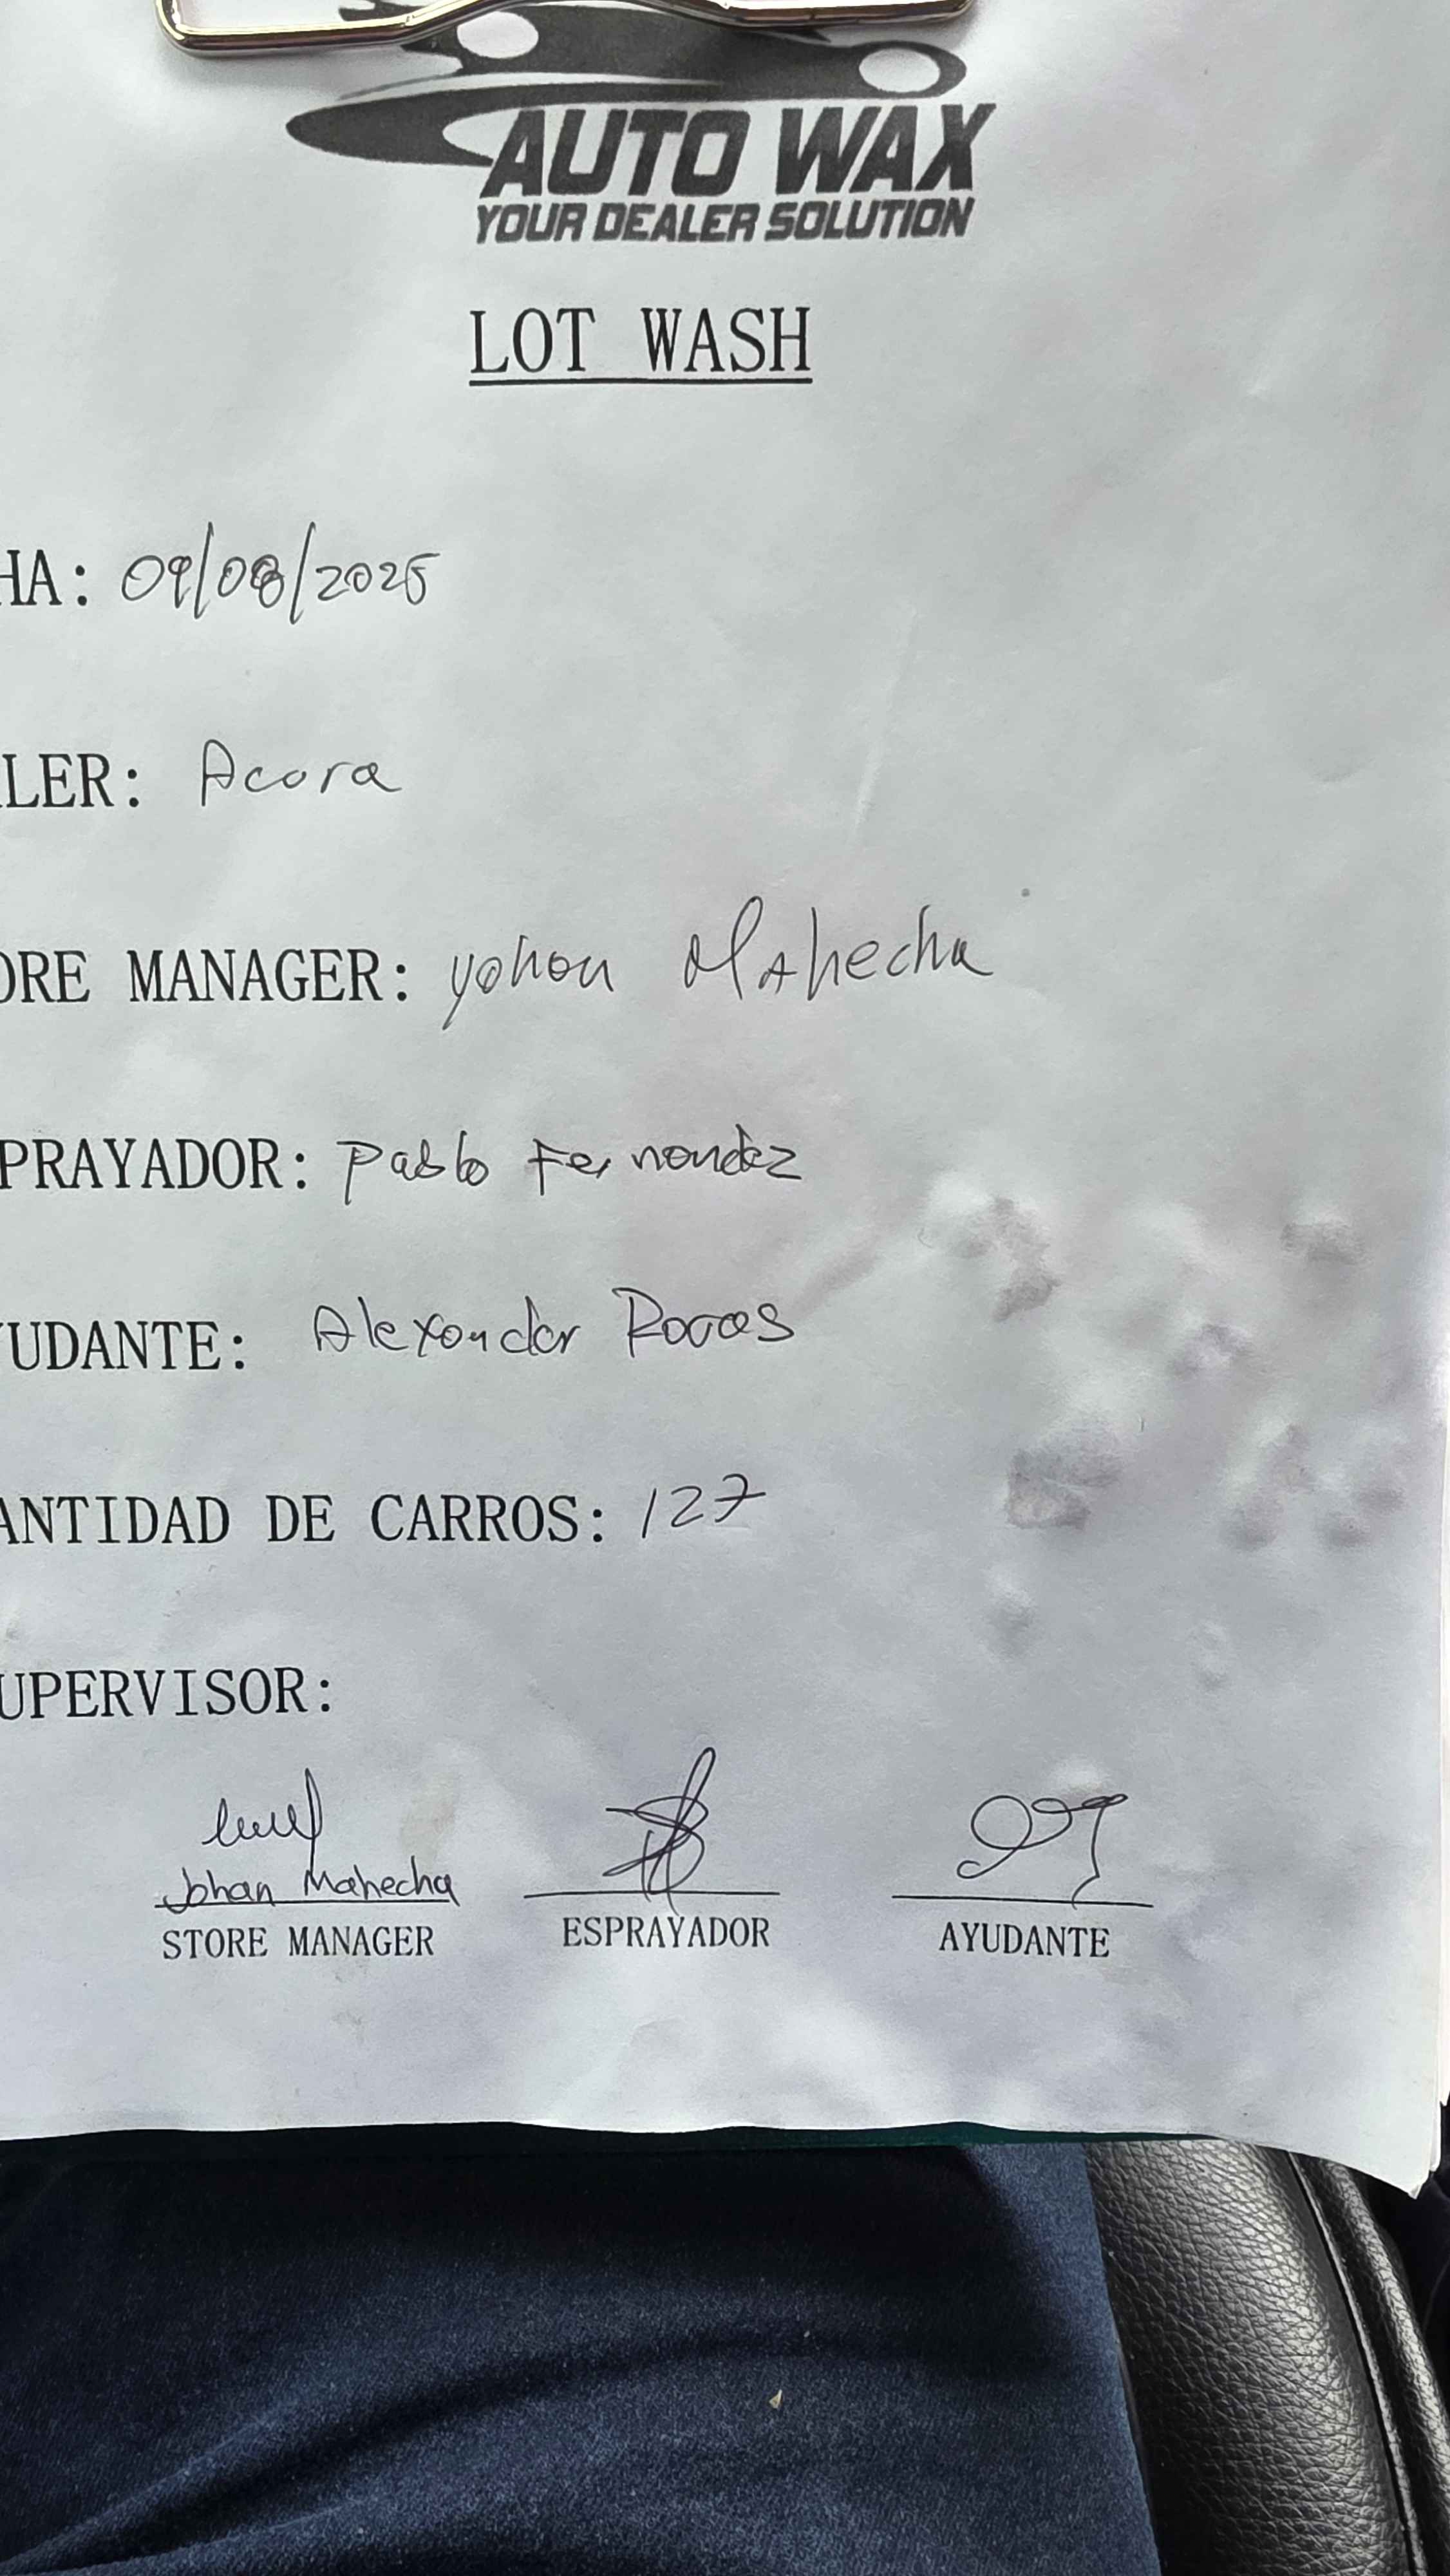 AUTO WAX
YOUR DEALER SOLUTION
LOT WASH
HA: 09/08/2025
LER: Acora
ORE MANAGER: yohon Mahecha
PRAYADOR: Pablo Fernondez
UDANTE: Alexonder
ANTIDAD DE CARROS: 127
UPERVISOR:
Johan Mahecha
STORE MANAGER ESPRAYADOR AYUDANTE